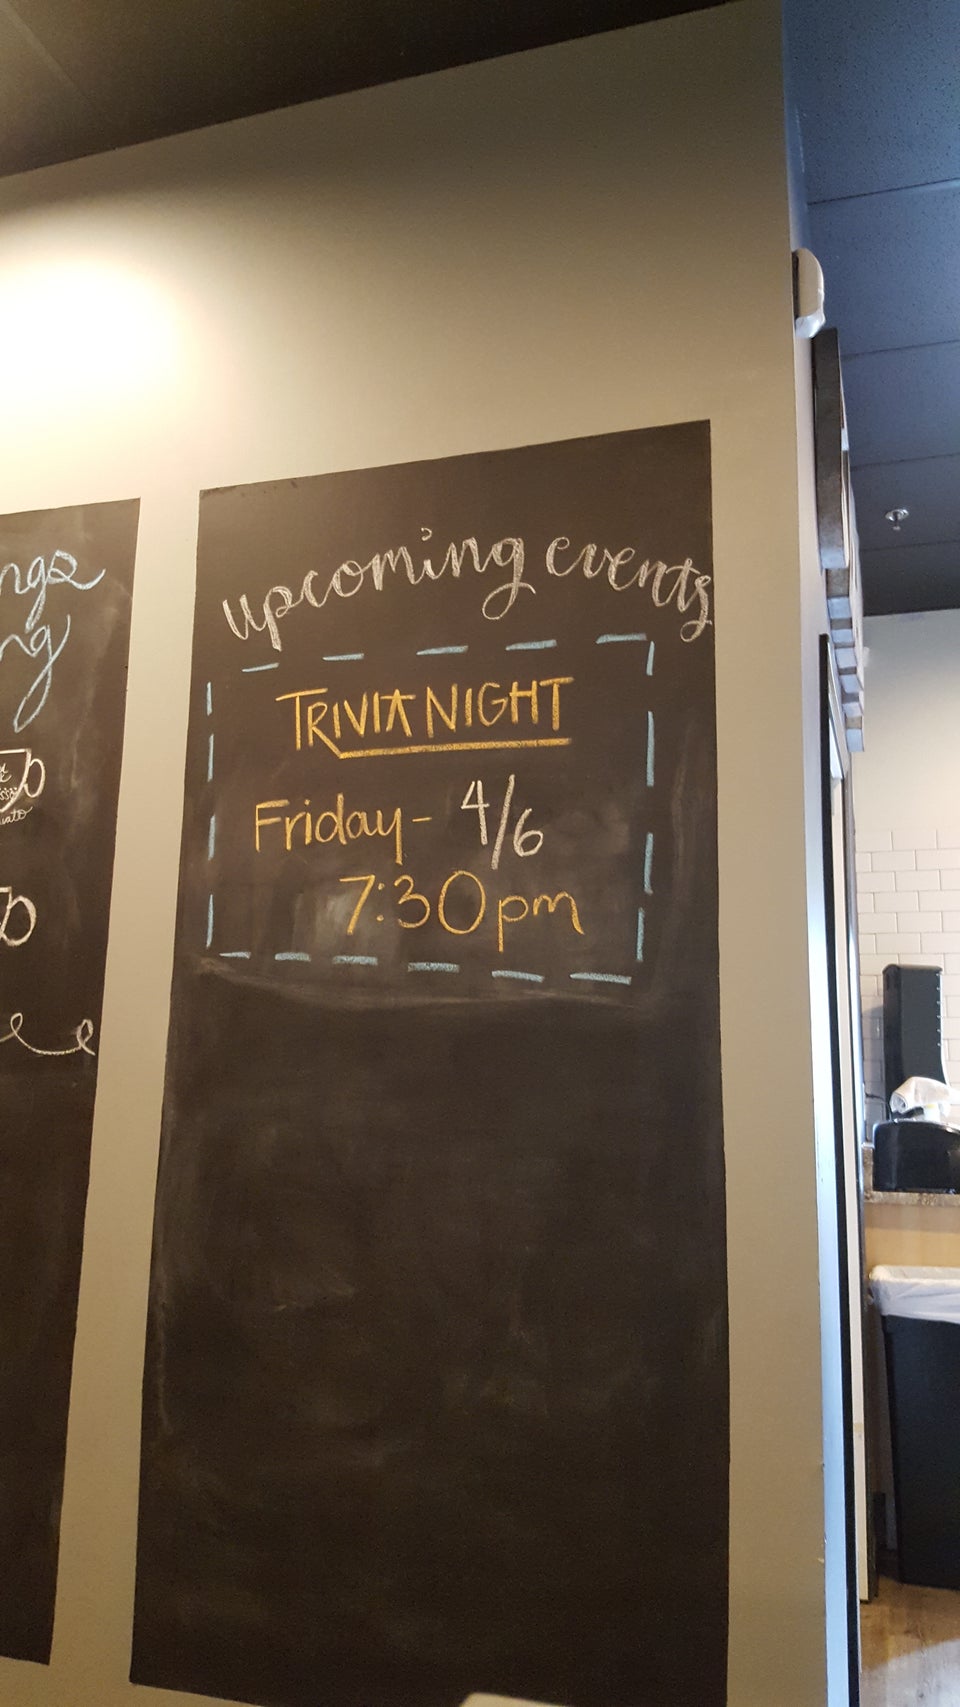 upcoming events
TRIVIA NIGHT
Friday - 4/6
7:30pm